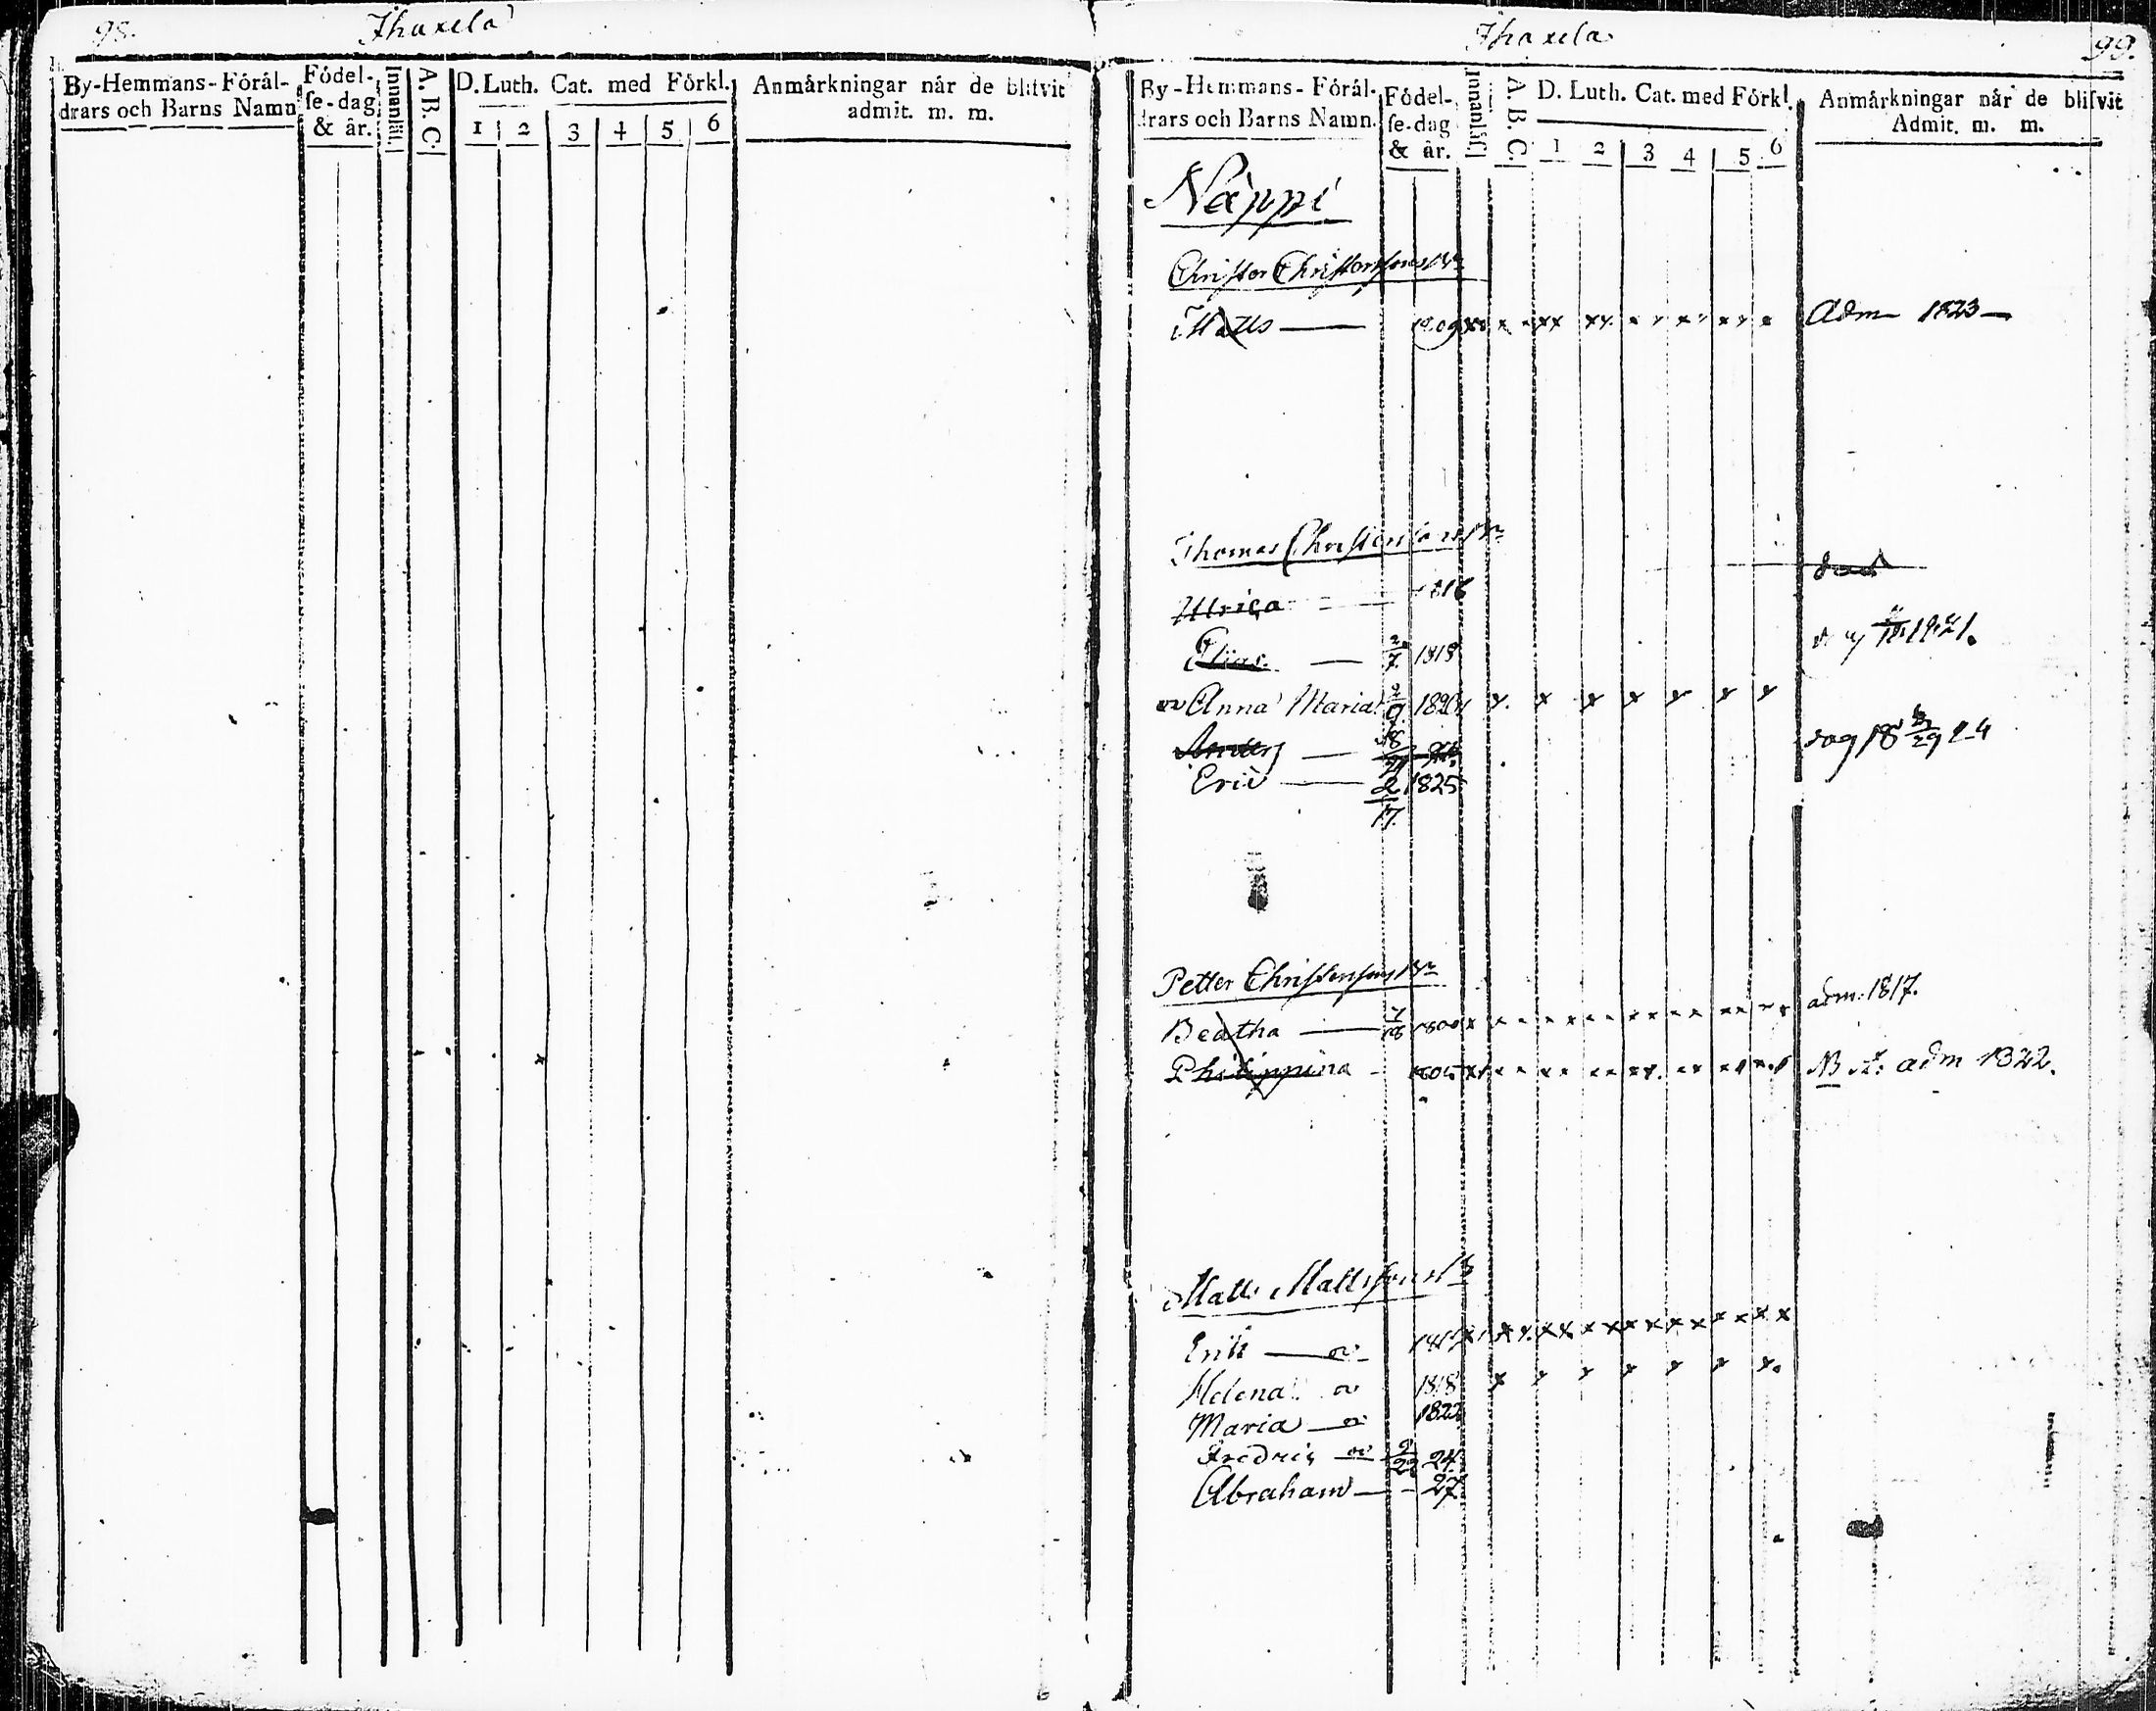 98.
Ihaxela
By-Hemmans-Förål-
drars och Barns Namn
Fódel-
ſe-dag
& år.
Innanläſ.
A. B. C.
D. Luth. Cat. med Förkl.
1 2 3 4 5 6
Anmårkningar når de blifvit
admit. m. m.
Ihaxela
99.
By-Hemmans-Förål-
drars och Barns Namn.
Födel-
ſe-dag
& år.
Innanläſ.
A. B. C.
D. Luth. Cat. med Förkl.
1 2 3 4 5 6
Anmårkningar når de blifvit
Admit. m. m.
Näppi
Christer Christerssons Bn
Matts — 1809 x x x x x x x x x x x Adm 1823 —
Thomas Christerssons Bn
Ulrica — 1816 död
Elias — 2/7 1818 1821.
Anna Maria 2/9 1820 x x x x x x x
Anders — 18/29 24
Eric — 2/17 1825
Petter Christerssons Bn
Beatha — 1800 x x x x x x x x x x x adm. 1817.
Philippina - x x x x x x x x x x x NB adm 1822.
Matts Mattssons B
Erik — x x x x x x x x x x x x x x
Helena 1818 x x x x x x x
Maria — 1822
Fredric 2/22 24.
Abraham — - 27.